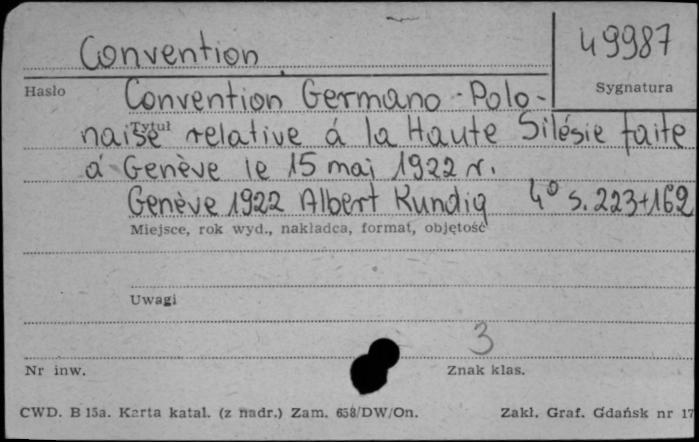 Convention
49987
Hasło
Sygnatura
Convention Germano-Polo-
Tytuł
naise relative á la Haute Silésie faite
á Genève le 15 mai 1922 r.
Genève 1922 Albert Kundig 4° s. 223+162
Miejsce, rok wyd., nakładca, format, objętość
Uwagi
3
Nr inw.
Znak klas.
CWD. B 15a. Karta katal. (z nadr.) Zam. 658/DW/On.
Zakł. Graf. Gdańsk nr 17